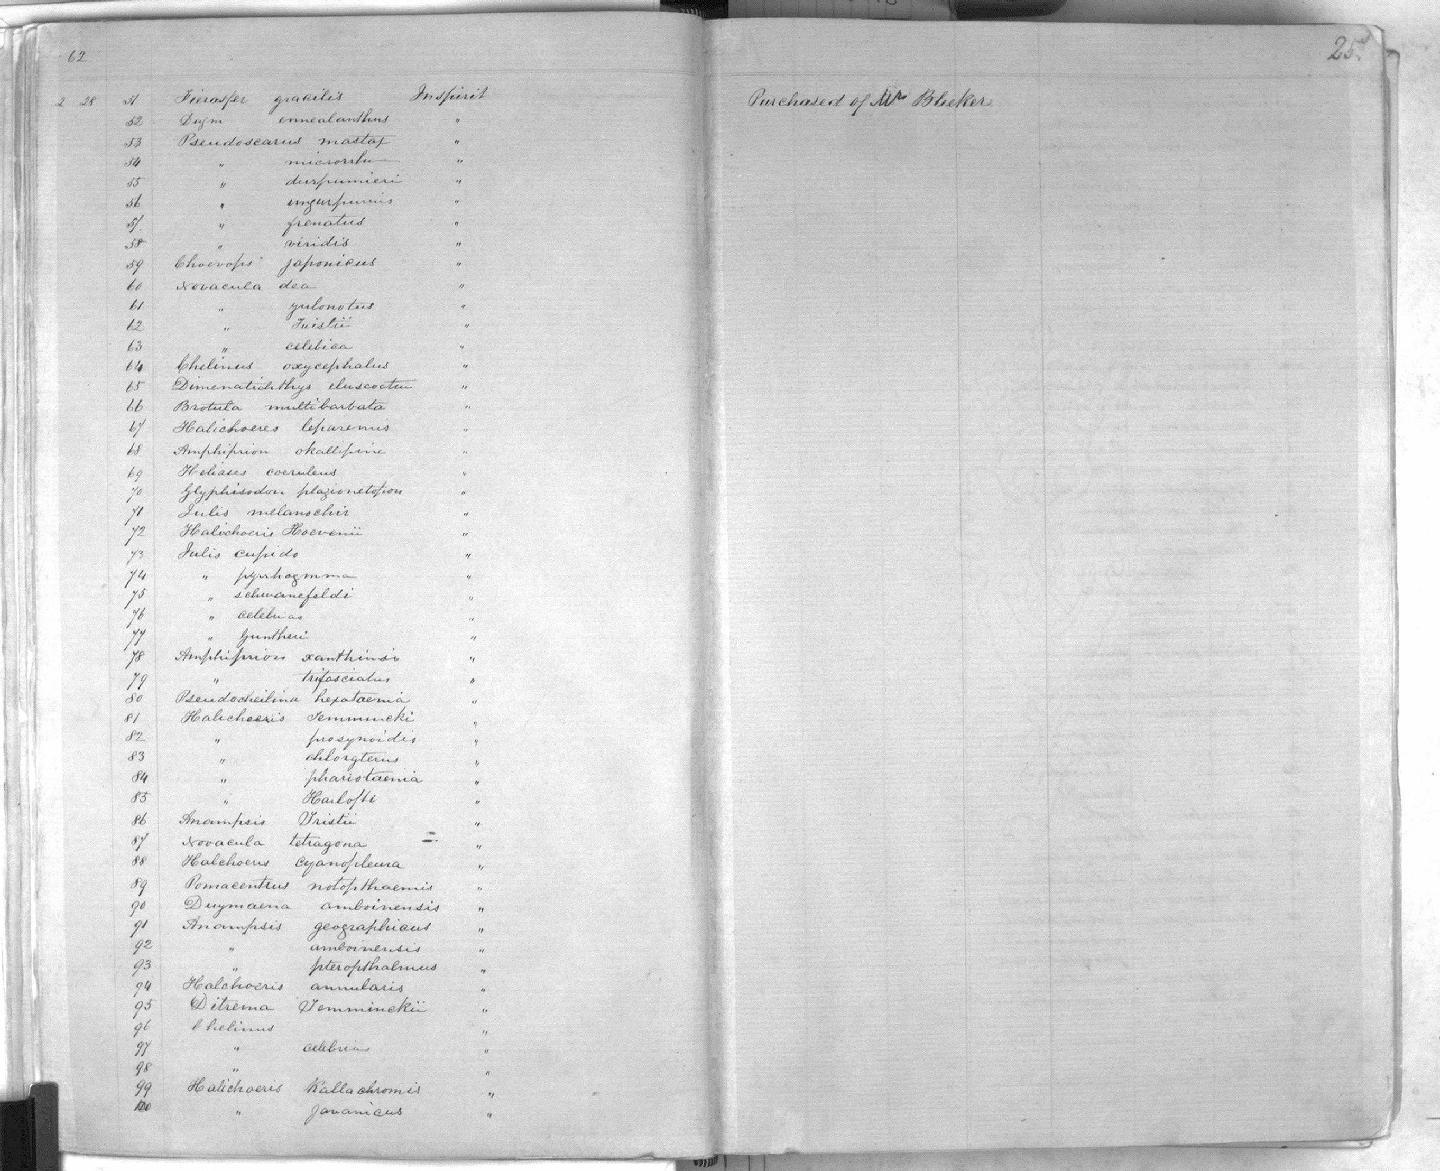 62
25.
2 28 51 Fierasfer gracilis In spirit Purchased of Mr Bleeker
52 Duym ennealanthus "
53 Pseudoscarus mastax "
54 " "
55 " dussumieri "
56 " "
57 " frenatus "
58 " viridis "
59 Choerops japonicus "
60 Novacula dea "
61 " "
62 " Twistii "
63 " celebica "
64 Chelinus oxycephalus "
65 Dinematichthys "
66 Brotula multibarbata "
67 Halichoeres leparemis "
68 Amphiprion "
69 Heliases coeruleus "
70 Glyphisodon plagiometopon "
71 Julis melanochir "
72 Halichoeris Hoevenii "
73 Julis cupido "
74 " "
75 " schwanefeldi "
76 " "
77 " Guntheri "
78 Amphiprion "
79 " trifasciatus "
80 Pseudocheilina hexataenia "
81 Halichoeris Temmincki "
82 " "
83 " "
84 " "
85 " "
86 Anampsis "
87 Novacula tetragona "
88 Halchoeris cyanopleura "
89 Pomacentrus notopthaemis "
90 Duymaena amboinensis "
91 Anampsis geographicus "
92 " amboinensis "
93 " pteropthalmus "
94 Halchoeris annularis "
95 Ditrema Temminckii "
96 Chelinus "
97 " "
98 " "
99 Halichoeris Kallochromis "
100 " javanicus "